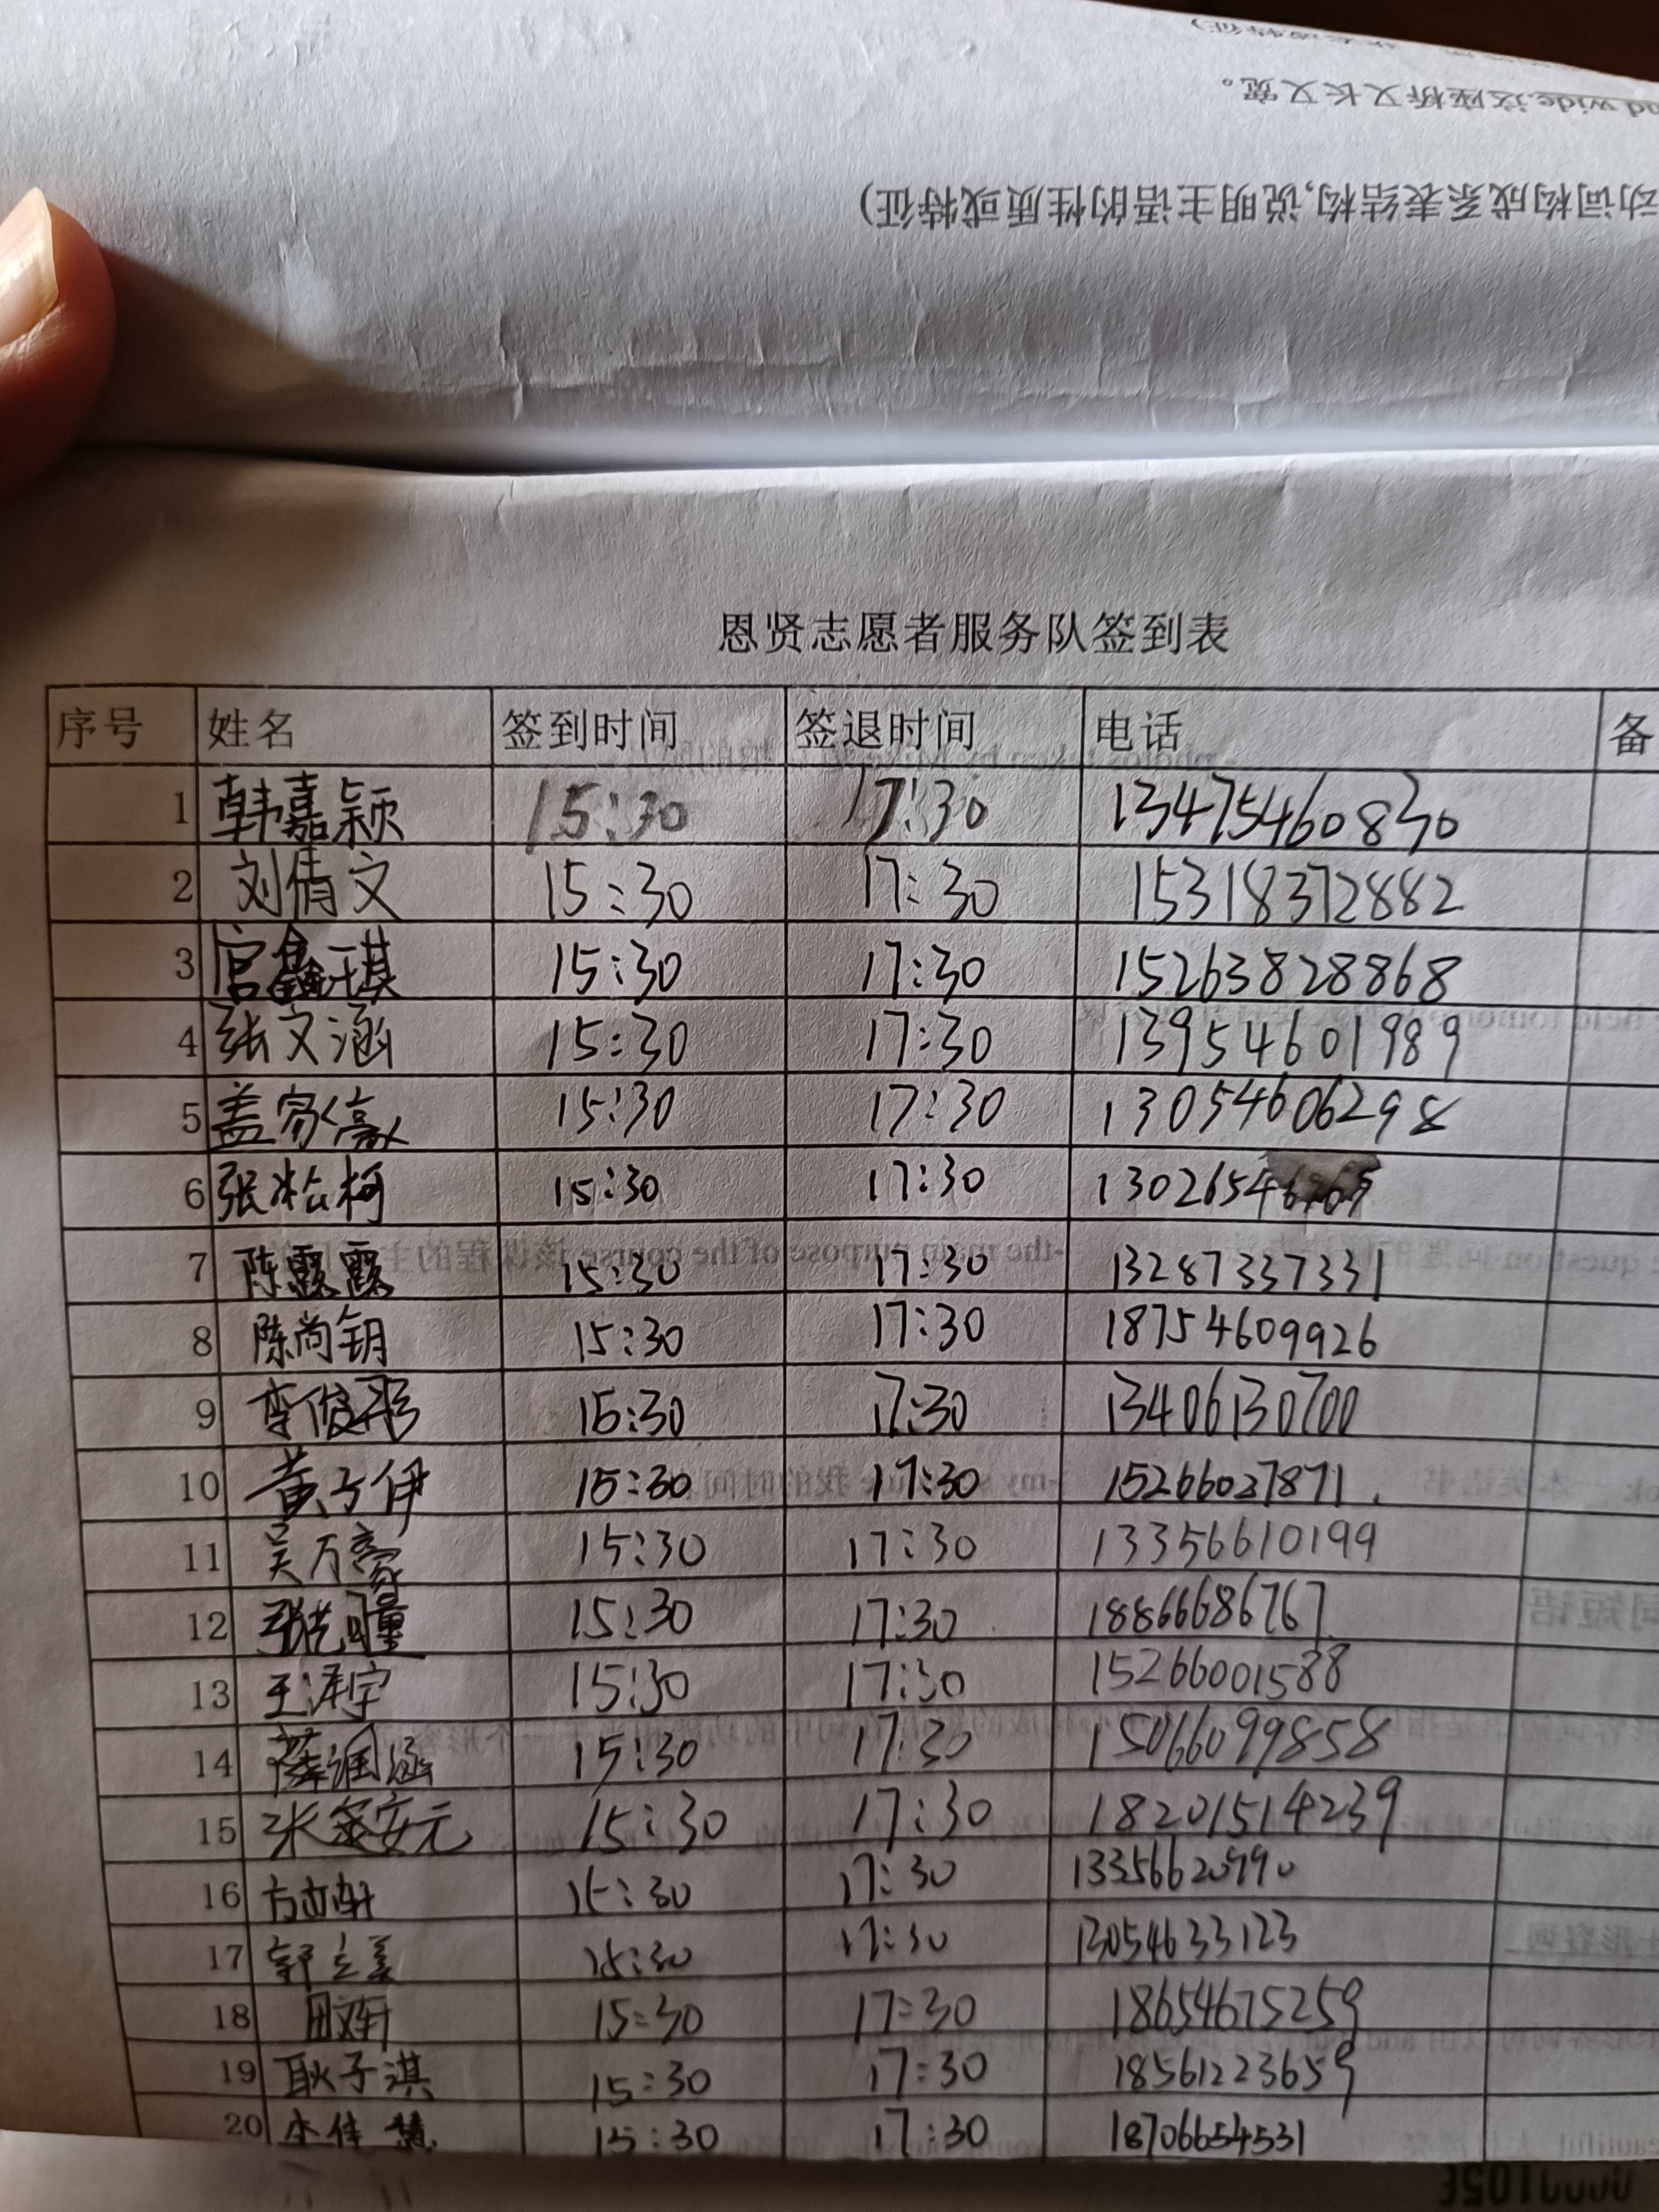 动词构成系表结构,说明主语的性质或特征)
wide.这座桥又长又宽。
恩贤志愿者服务队签到表
序号 姓名 签到时间 签退时间 电话 备
1 韩嘉颖 15:30 17:30 13475460830
2 刘倩文 15:30 17:30 15318372882
3 宫鑫琪 15:30 17:30 15263828868
4 张文涵 15:30 17:30 13954601989
5 盖家豪 15:30 17:30 13054606298
6 张淞柯 15:30 17:30
7 陈露露 15:30 17:30 13287337331
8 陈尚钥 15:30 17:30 18754609926
9 李俊彤 15:30 17:30 13406130700
10 黄子伊 15:30 17:30 15266027871
11 吴万豪 15:30 17:30 13356610199
12 15:30 17:30 18866686767
13 王泽宇 15:30 17:30 15266001588
14 薛润涵 15:30 17:30 15066099858
15 15:30 17:30 18201514239
16 15:30 17:30
17 郭立美 15:30 17:30 13054633123
18 15:30 17:30 18654675259
19 耿子淇 15:30 17:30 18561223659
20 15:30 17:30 18706654531